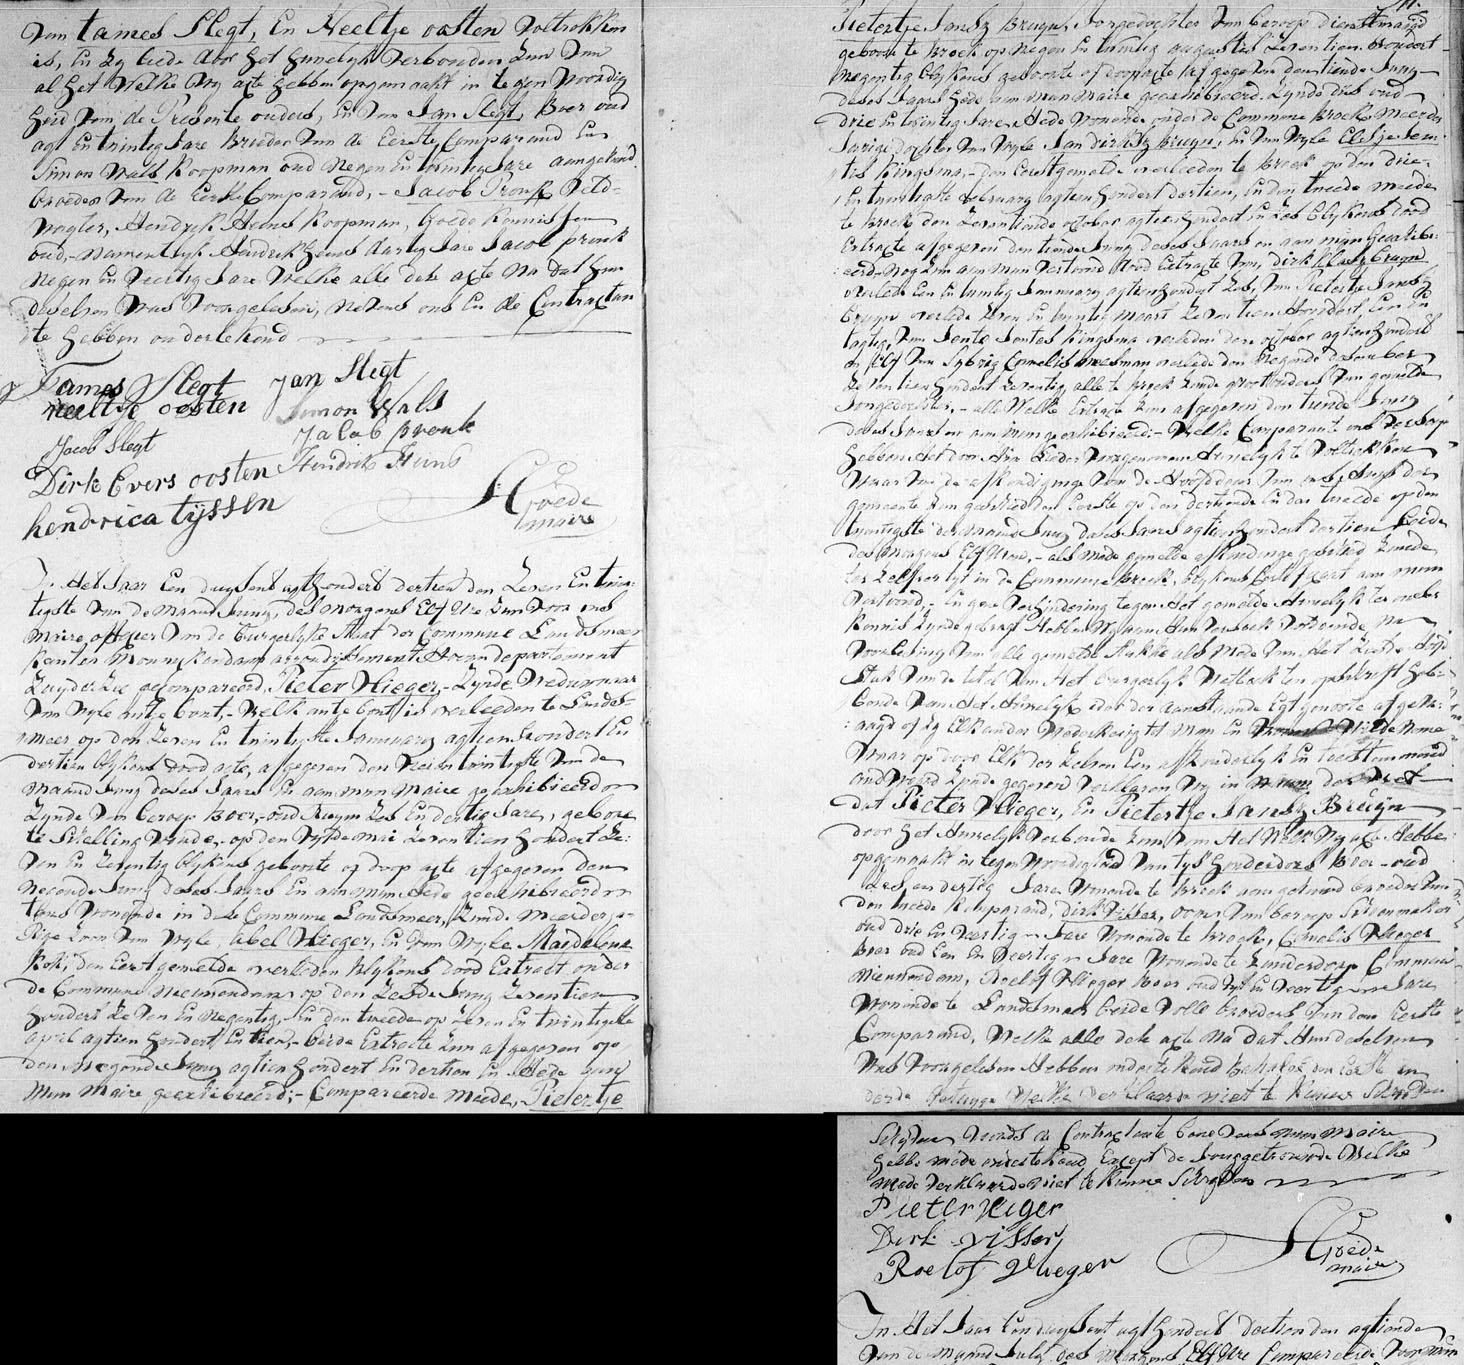 Van Tames Slegt, En Neeltje oosten Voltrokken
is, En zy liede door het huwelyk verbonden Zyn Van
al het Welke Wy acte hebben opgemaakt in tegenwoordig
heid Van de Presente ouders, En Van Jan Slegt, Boer oud
agt En twintig Jare Broeder Van de Eerste Comparand En
Simon Wals Koopman oud Negen En twintig Jare aangehuwd
broeder Van de Eerste Comparand, - Jacob Pronk Veld-
wagter, Hendrik Heins Koopman, Goede Kennissen
oud, - namentlyk Hendrik Heins dartig Jare Jacob pronk
Negen En Veertig Jare Welke alle deze acte Na dat hun
deselven Was Voorgelesen, nevens ons En de Contractan
te hebben onderteekend
Tames Slegt Jan Slegt
neeltje oosten Simon Wals
Jacob Slegt Jacob pronk
Dirk Evers oosten Hendrik Heins
hendrica tyssen
H Goede
maire
In Het Jaar Een duysent agthonderd dertien den Zeven En twin-
tigste Van de Maand Juny, des morgens Elf Ure Zyn Voor ons
Maire officier Van de burgerlyke Staat der Commune Landsmeer
Kanton Monnikendam arrondissement Hoorn departement
Zuyder Zee gecompareerd, Pieter Vlieger, - Zynde Weduwnaar
Van Wyle antje bont, - Welk antje bont is overleeden te Lands-
meer op den Zeven En twintigste January agtienhonderd En
dertien blykens dood acte, afgegeven den Vierentwintigste Van de
maand Juny deses Jaars En aan myn Maire geexhibieerd
Zynde Van beroep Boer, oud Ruym Zes En dertig Jare, gebore
te Schellingwoude, op den Vyfde mai Zeventien hondert Ze-
ven En Zeventig blykens geboorte of doop acte Afgegeven den
Juny deses Jaars En aan myn Hede geexhibeerd
thans Wonende in deze Commune Landsmeer, Zynde Meerderja-
rige Zoon Van Wyle, Abel Vlieger, En Van Wyle Magdalena
Kok, den Eerst gemelde overleden blykens dood Extract onder
de Commune Nieuwendam op den Zesde Juny Zeventien
hondert Zeven En Negentig, En den tweede op Zeven En twintigste
April agtien hondert En tien, - beide Extracte Zyn afgegeven op
den Negende Juny agtien hondert En dertien En Hede aan
Myn Maire geexhibeerd; - Compareerde mede, Pietertje
Pietertje Jansz Bruyn, Jongedochter Van beroep dienstmaagd
geboore te Broek op Negen En twintig augustus Zeventien hondert
Negentig blykens geboorte of doopacte afgegeven den tiende Juny
deses Jaars Hede aan myn Maire geexhibeerd, Zynde dus oud
drie En twintig Jare, Hede Wonende onder de Commune Broek, Meerder
Jarige dochter Van Wyle Jan dirksz Bruyn, En Van Wyle Elisje Jen-
tis Kingsma, - den Eerstgemelde overleeden te Broek op den drie-
En twintigste February agtienhondert dertien, En den tweede meede
te Broek den Zeventiende october agtienhondert En Zes blykens dood
Extracte afgegeven den tiende Juny deses Jaars en aan myn geexhibe-
eerd, - Nog Zyn aan myn Vertoond dood Extracte Van, dirk Klaasz Bruyn
overlede Een En twintig January agtienhondert Zes, Van Pietertje Jansz
Bruyn overlede Zeven En twintig Maart Zeventienhondert, Een En
tagtig, Van Jente Jentes Kingsma overleden den october agtienhondert
en Elf Van Sybrig Cornelis overlede den Negende december
Zeventien hondert Zeventig, alle te Broek Zynde grootouders Van gemelde
Jongedochter, - alle Welke Extracte Zyn afgegeven den tiende Juny
deses Jaars en aan myn geexhibeerd: - Welke Comparant ons Versogt
hebben Het door Hun Lieder Voorgenomen Huwelyk te Voltrekken
Waar Van de afkondiginge Van de Hoofddeur Van ons huys der
gemeente Zyn geschied den Eerste op den dertiende En de tweede op den
twintigste der maand Juny deses Jaars agtienhondert dertien beide
des Morgens Elf Uren, - als mede gemelde afkondinge geschied Zynde
ter Zelfder tyt in de Commune Broek, blykens Certificaat aan myn
Vertoond, - En geen Verhindering tegen Het gemelde Huwelyk ter onser
Kennis Zynde gebragt Hebben Wy aan Hun Versoek Voldoende na
Voorlesing Van alle gemelde stukke als Mede Van Het Zesde Hoofd
Stuk Van de tital Van Het burgerlyk Wetboek ten opschrift heb-
bende Van Het Huwelyk aan de Aanstaande Egtgenoote afgevra-
agd of Zy Elkander Wederkerig tot Man En Vrouw Wilde Nemen
Waar op door Elk der Zelven En afzonderlyk En toestemmend
andwoord Zynde gegeven Verklaren Wy in naam der Wet
dat Pieter Vlieger, En Pietertje Jansz Bruyn
door Het Huwelyk Verbonden Zyn Van Het Welk Wy acte Hebbe
opgemaakt in tegenwoordigheid Van Boer - oud
Zes, en dertig Jare Wonende te Broek aangehuwd broeder Van
den tweede Comparand, Dirk Visser, ooms Van beroep Schoenmaker
oud drie En Veertig Jare Wonende te Broek, Cornelis Vlieger
Boer oud Een En Veertig Jare Wonende te Zunderdorp Commune
Nieuwendam, Roelof Vlieger Boer oud Vyf En Veertig Jare
Wonende te Landsmeer beide Volle broeders Van den Eerste
Comparand, Welke alle deze acte Na dat Hun deselven
Was Voorgelesen Hebben onderteekend behalve den Eerste en
derde getuyge Welke Verklaarde niet te Kunne Schryven
Schryven Nevens de Contractante benevens myn Maire
hebbe mede onderteekend Except de Jonggetrouwde Welke
Mede Verklaarde niet te Kunne Schryven
Pieter Vlieger
Dirk Visser
Roelof Vlieger
H Goede
maire
In Het Jaar Een duysent agthondert dertien den agtiende
Van de maand July des morgens Elf Ure Compareerde Voor myn